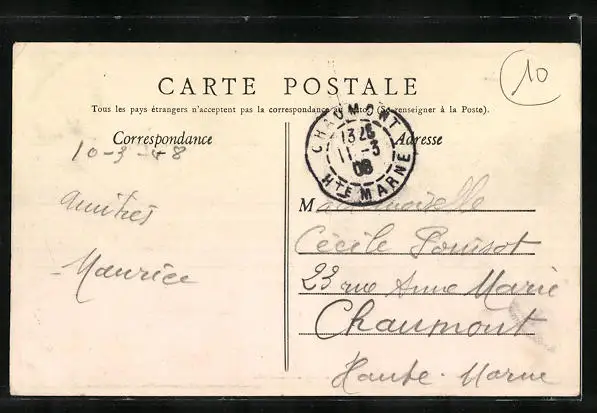 10
CARTE POSTALE
Tous les pays étrangers n'acceptent pas la correspondance au recto. (Se renseigner à la Poste).
Correspondance
Adresse
CHAUMONT
13 25
11 -3
08
HTE MARNE
10-3-48
amitiés
Maurice
Mademoiselle
Cécile
23 rue Anne Marie
Chaumont
Haute-Marne